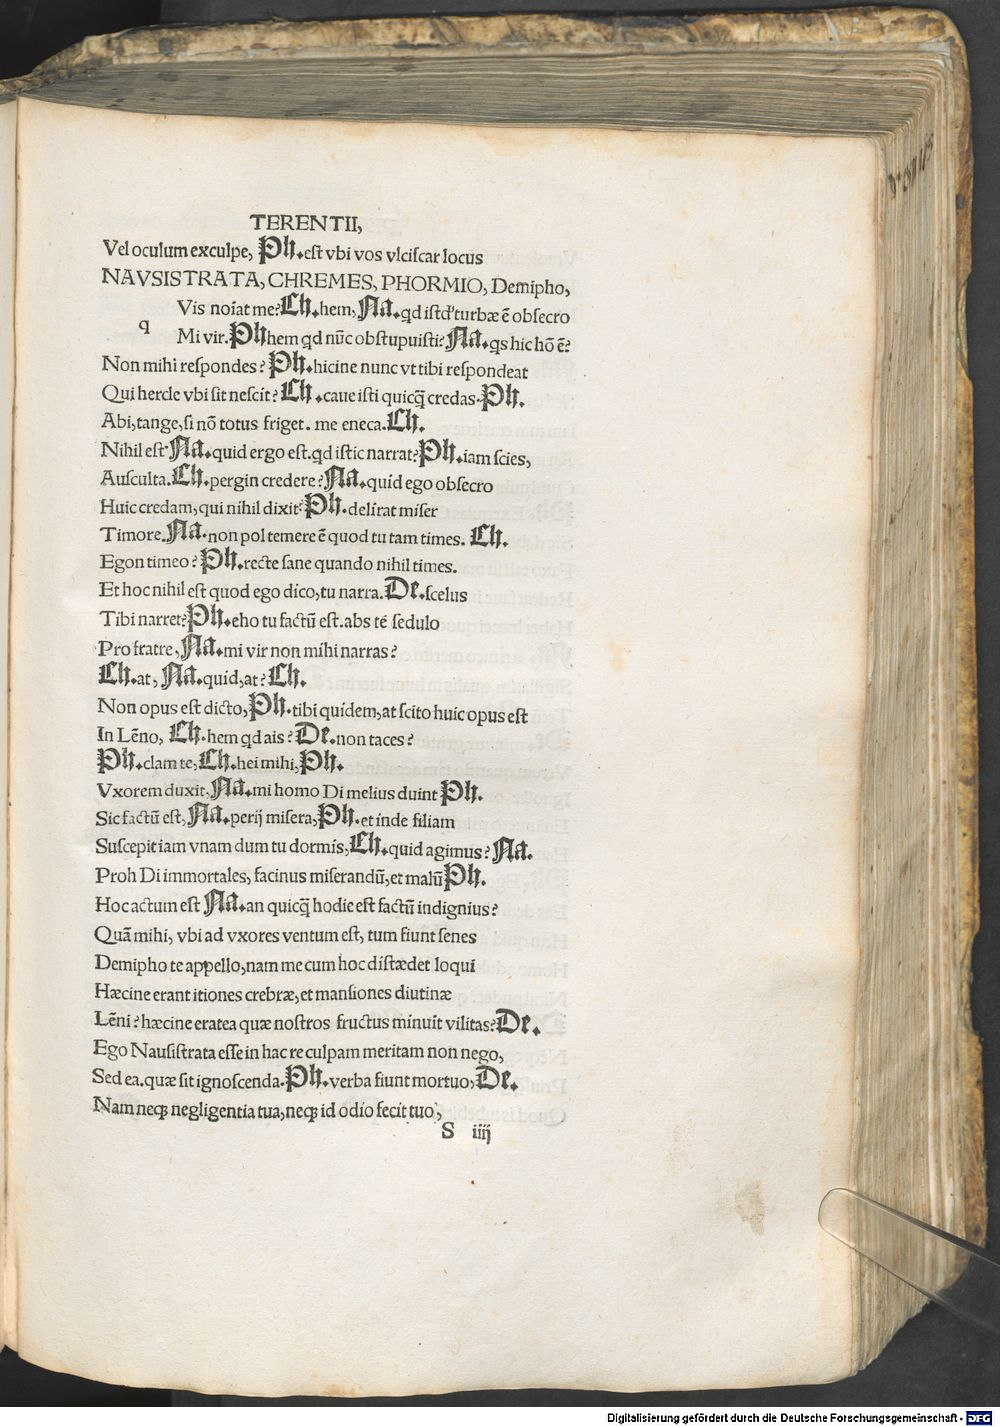 TERENTII,
Vel oculum exculpe, Ph. est vbi vos vlciscar locus
NAVSISTRATA, CHREMES, PHORMIO, Demipho,
Vis noīat me? Ch. hem, Na. qd istd' turbæ ē obsecro
q
Mi vir. Ph hem qd nūc obstupuisti? Na. qs hic hō ē?
Non mihi respondes? Ph. hicine nunc vt tibi respondeat
Qui hercle vbi sit nescit? Ch. caue isti quicq̄ credas. Ph.
Abi, tange, si nō totus friget. me eneca. Ch.
Nihil est. Na. quid ergo est. qd istic narrat? Ph. iam scies,
Ausculta. Ch. pergin credere? Na. quid ego obsecro
Huic credam, qui nihil dixit? Ph. delirat miser
Timore. Na. non pol temere ē quod tu tam times. Ch.
Egon timeo? Ph. recte sane quando nihil times.
Et hoc nihil est quod ego dico, tu narra. De. scelus
Tibi narret? Ph. eho tu factū est. abs te sedulo
Pro fratre, Na. mi vir non mihi narras?
Ch. at, Na. quid, at? Ch.
Non opus est dicto, Ph. tibi quidem, at scito huic opus est
In Lēno, Ch. hem qd ais? De. non taces?
Ph. clam te, Ch. hei mihi, Ph.
Vxorem duxit, Na. mi homo Di melius duint Ph.
Sic factū est, Na. perij misera, Ph. et inde filiam
Suscepit iam vnam dum tu dormis, Ch. quid agimus? Na.
Proh Di immortales, facinus miserandū, et malū Ph.
Hoc actum est Na. an quicq̄ hodie est factū indignius?
Quā mihi, vbi ad vxores ventum est, tum fiunt senes
Demipho te appello, nam me cum hoc distædet loqui
Hæcine erant itiones crebræ, et mansiones diutinæ
Lēni? hæcine eratea quæ nostros fructus minuit vilitas? De.
Ego Nausistrata esse in hac re culpam meritam non nego,
Sed ea. quæ sit ignoscenda. Ph. verba fiunt mortuo, De.
Nam neqꝫ negligentia tua, neqꝫ id odio fecit tuo,
S iiij
Digitalisierung gefördert durch die Deutsche Forschungsgemeinschaft - DFG